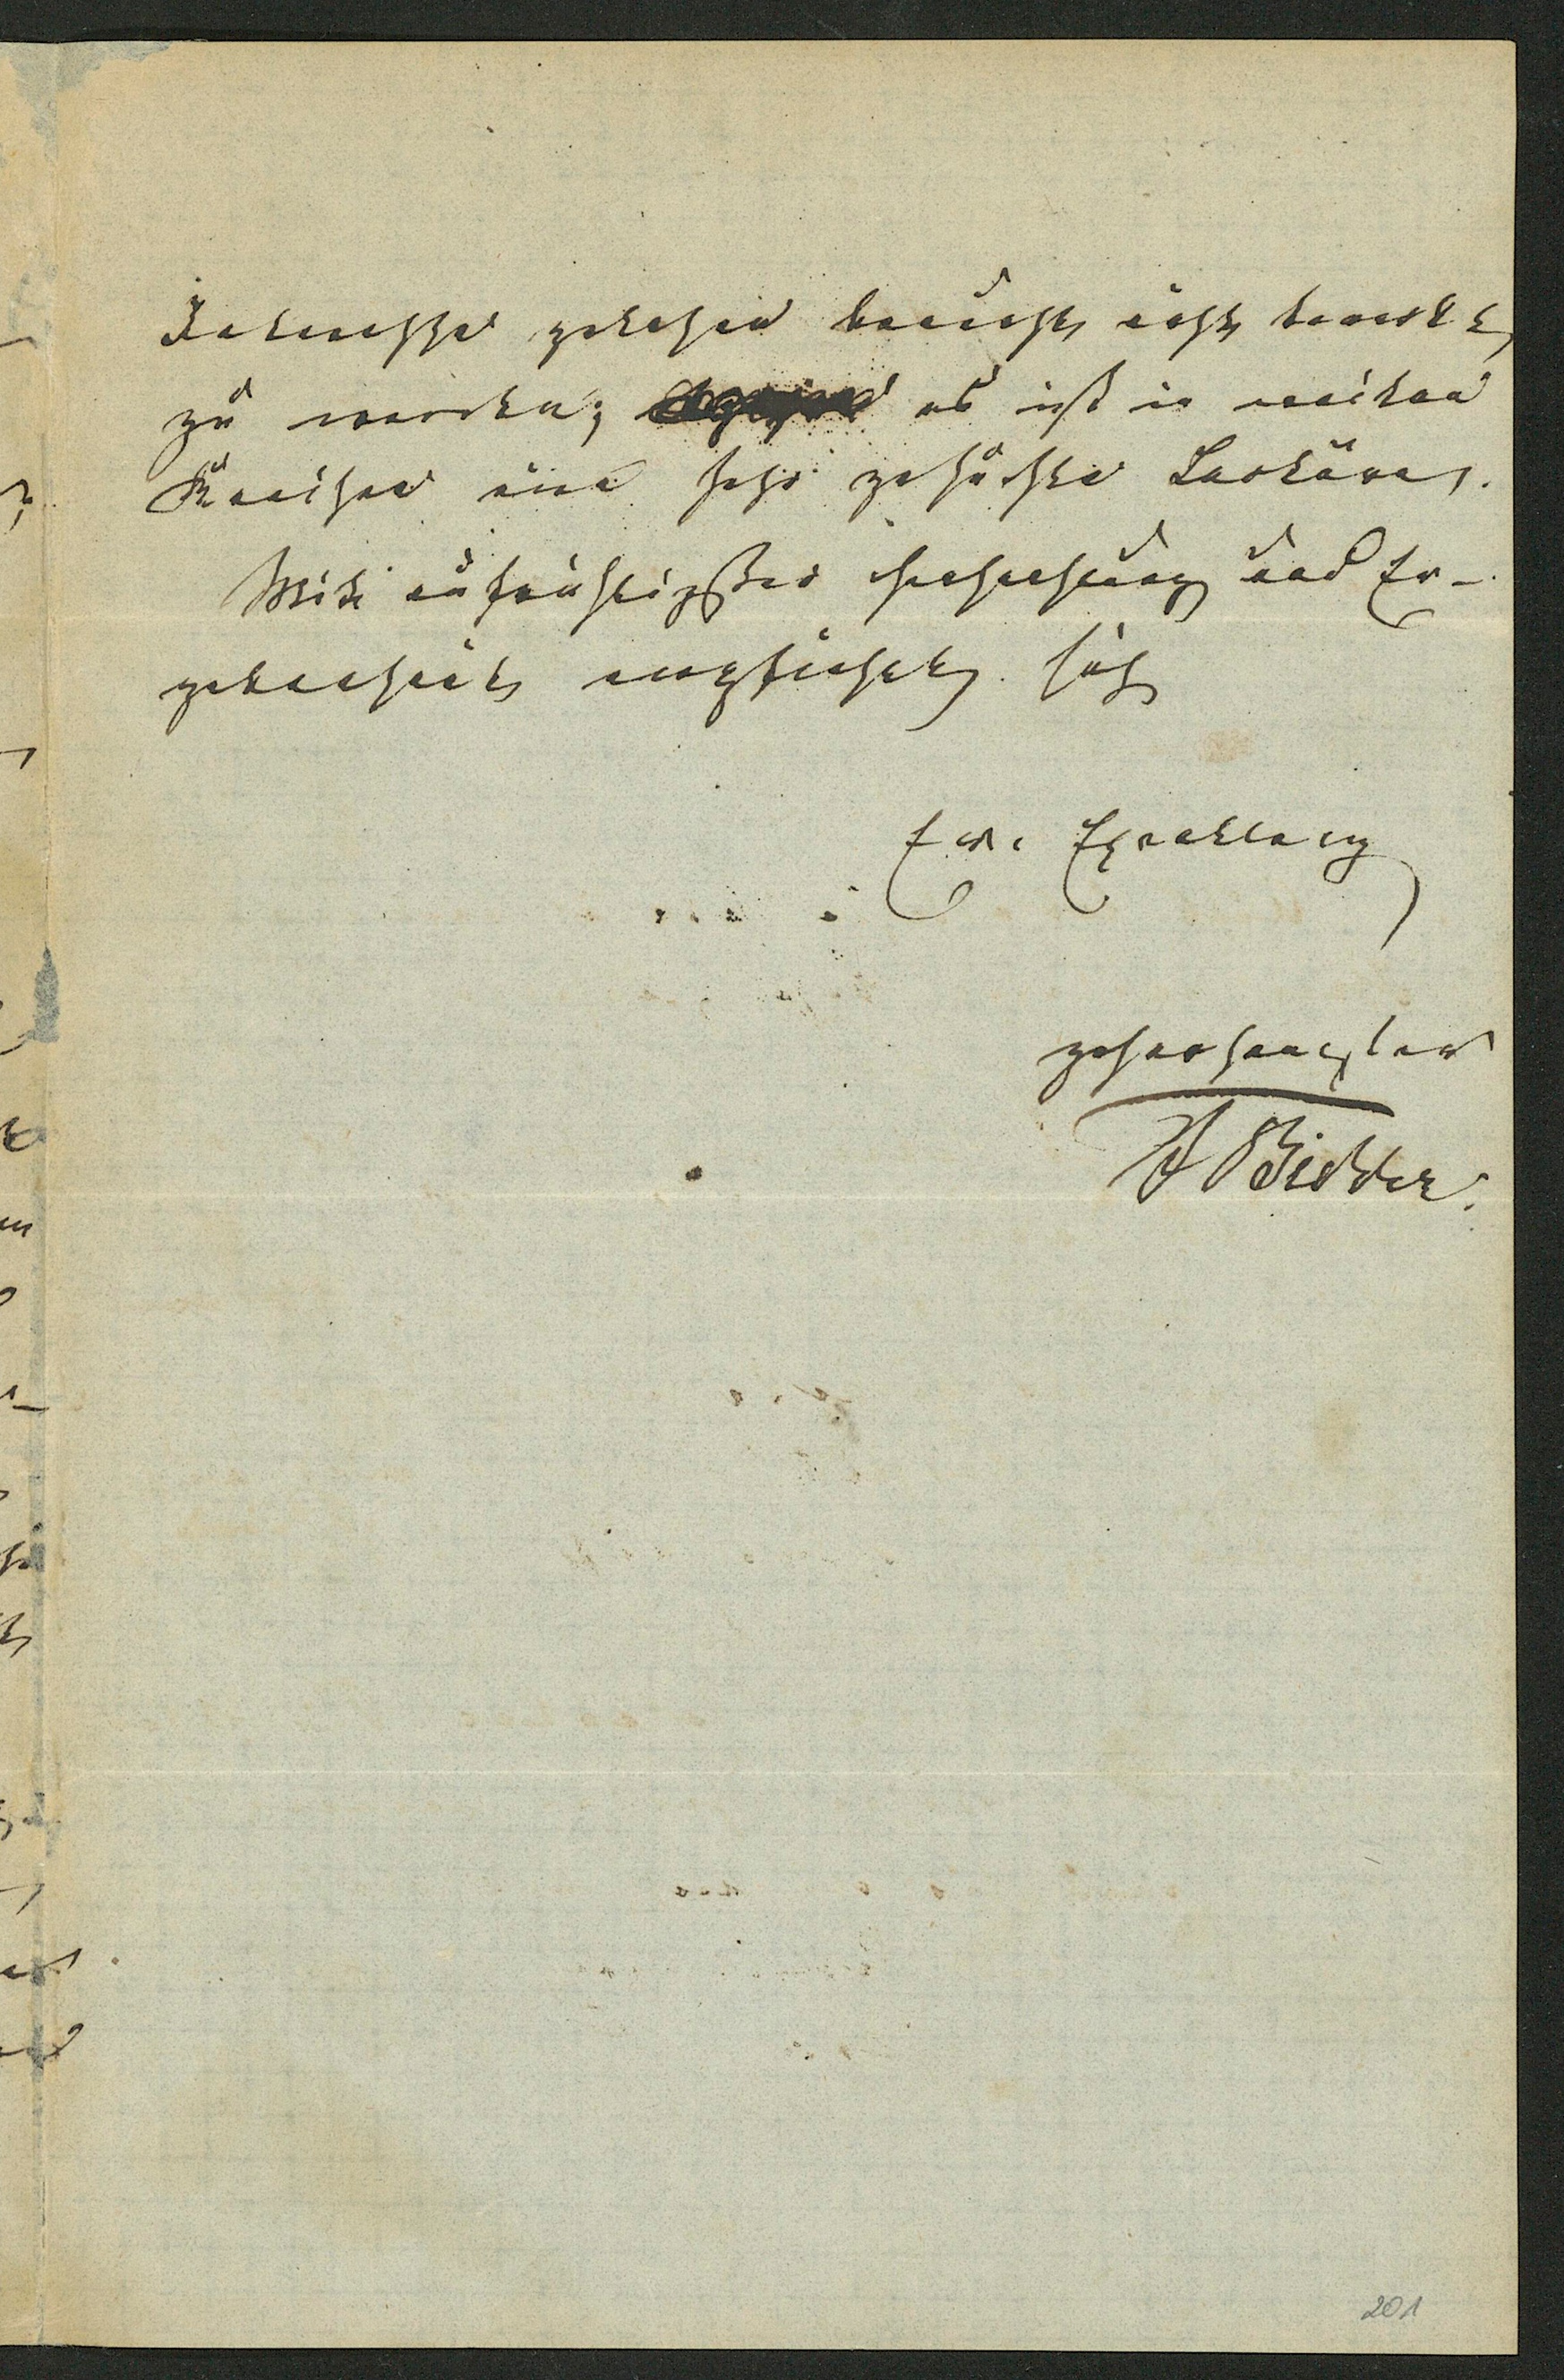 Interesse gelesen braucht nicht bemerkt
zu werden; es ist in weiten
Kreisen eine sehr gesuchte Lectüre.
Mit aufrichtigster Hochachtung und Er-
gebenheit empfiehlt sich
Ew. Excellenz
gehorsamster
F Bidder.
201